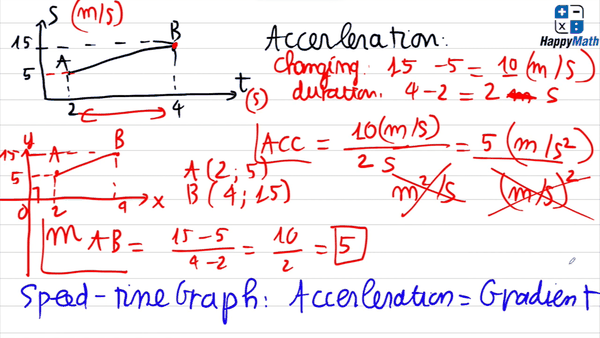 S (m/s)
15
B
A
5
2
4
t
(s)
HappyMath
Accerleration:
Changing: 15 - 5 = 10 (m/s)
duration: 4 - 2 = 2 s
ACC = 10(m/s) / 2 s = 5 (m/s²)
m²/s (m/s)²
y
15
A
B
5
0
2
4
x
A (2; 5)
B (4; 15)
m AB = 15 - 5 / 4 - 2 = 10 / 2 = 5
Speed-time Graph: Accerleration = Gradient